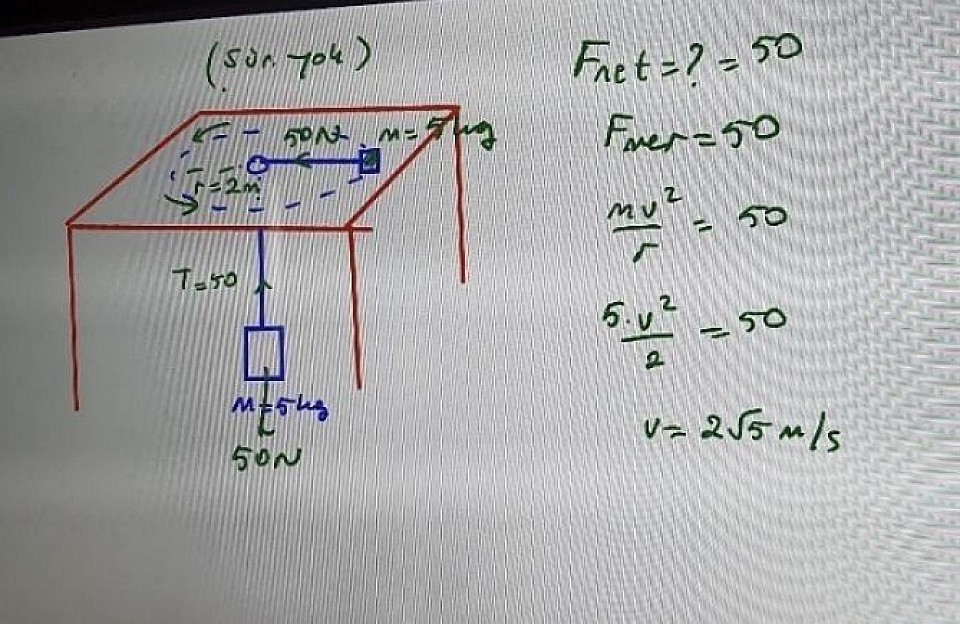 (Sür. yok)
50N
m=5kg
r=2m
T=50
M=5kg
50N
Fnet=?=50
Fmer=50
mv²/r = 50
5.v²/2 = 50
v=2√5 m/s